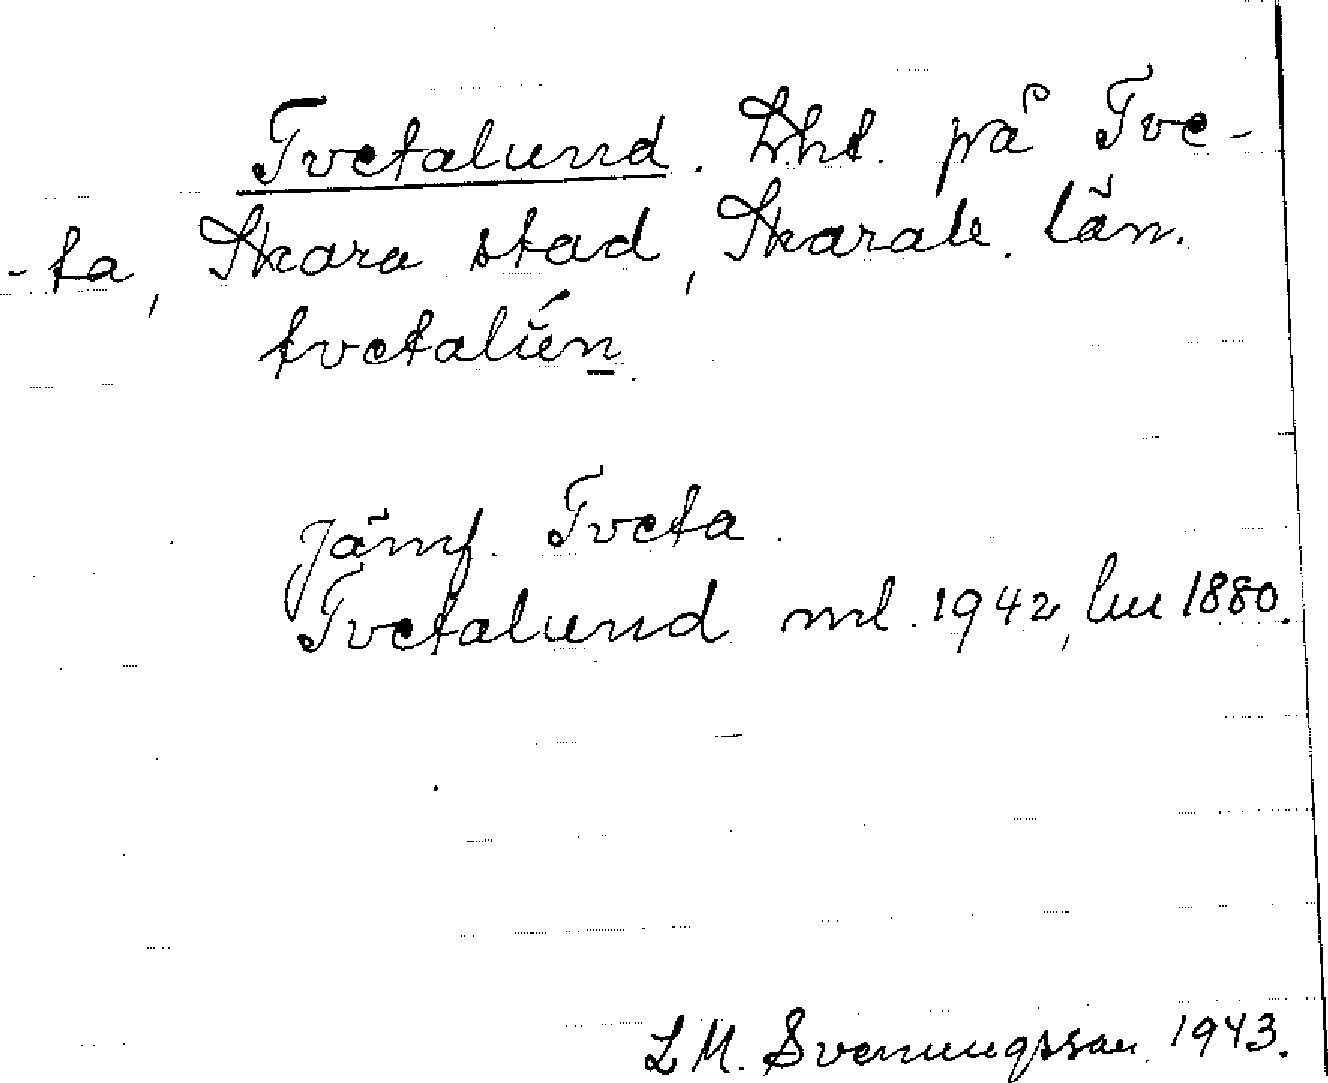 Tvetalund. Lht. på Tve-
-ta, Skara stad, Skarab. län.
tvetalŭén
Jämf. Tveta.
Tvetalund ml. 1942, lm 1880.
L M. Svenungsson 1943.